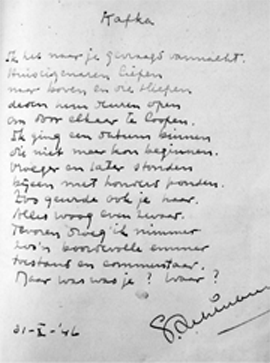 Kafka
Ik het naar je gevraagd vannacht.
Huiseigenaren liepen
naar boven en die sliepen
deden hun deuren open
om door elkaar te loopen.
Ik ging een datum binnen
die niet meer kon beginnen.
Vroeger en later stonden
bijeen met honderd ponden.
Zoo geurde ook je haar.
Alles woog even zwaar.
Tevoren droeg ik nimmer
zoo'n boordevolle emmer
verstand en commentaar.
Maar was was je? Waar?
31-X-'46